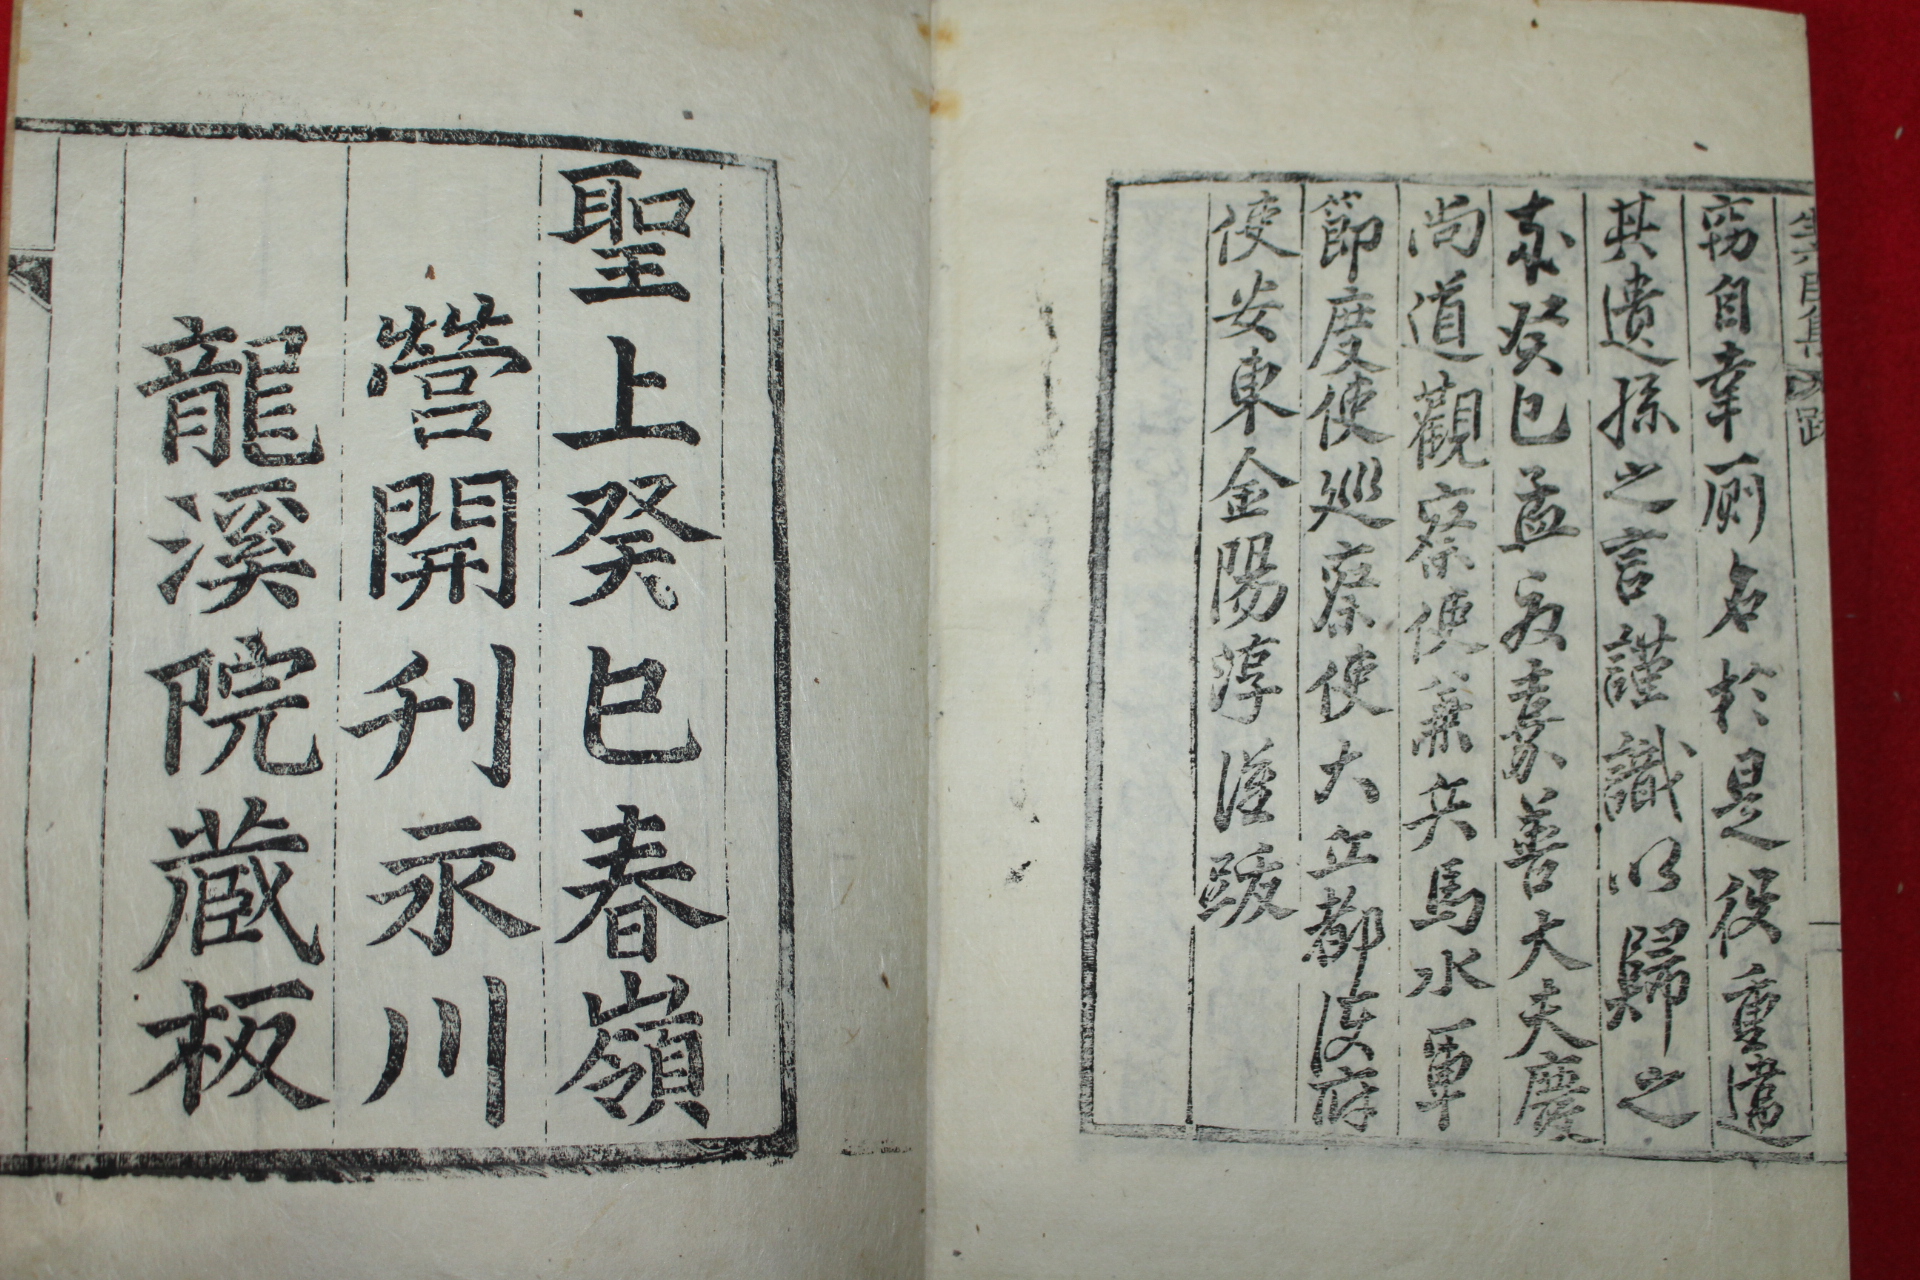 竊自幸厠名於是役重違
其遺孫之言謹識以歸之
癸巳孟 嘉善大夫慶
尚道觀察使兼兵馬水軍
節度使巡察使大丘都護府
使安東金陽淳謹跋
聖上癸巳春嶺
營開刊永川
龍溪院蔵板